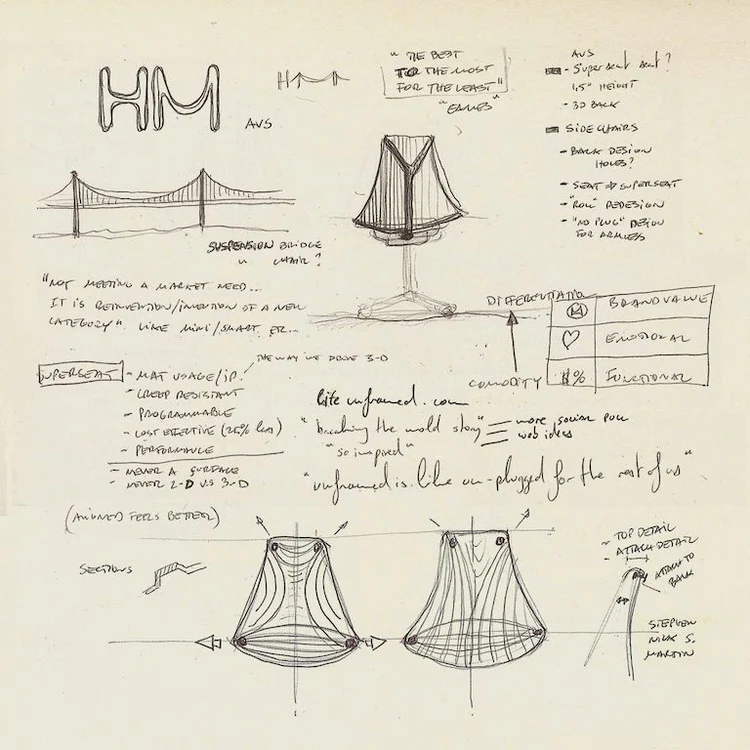 HM
HM
AVS
"THE BEST
TO THE MOST
FOR THE LEAST"
"EAMES"
AVS
- SUPERSEAT SEAT?
1.5" HEIGHT
- 3D BACK
SIDE CHAIRS
- BACK DESIGN
HOLES?
- SEAT → SUPERSEAT
- "ROLL" REDESIGN
- "NO PLUG" DESIGN
FOR ARMLESS
SUSPENSION BRIDGE
CHAIR?
"NOT MEETING A MARKET NEED...
IT IS REINVENTION/INVENTION OF A NEW
CATEGORY" LIKE MINI/SMART, ETC...
DIFFERENTIATION
COMODITY
M BRANDVALUE
♡ EMOTIONAL
$% FUNCTIONAL
THE WAY WE DRIVE 3-D
SUPERSEAT
- MAT USAGE/IP.
- CREEP RESISTANT
- PROGRAMMABLE
- COST EFFECTIVE (25% less)
- PERFORMANCE
- NEVER A SURFACE
- NEVER 2-D VS 3-D
(ALIGNED FEELS BETTER)
life unframed.com
"breaking the mold story"
more social
web ideas
"so inspired"
"unframed is like un-plugged for the rest of us"
SECTIONS
- TOP DETAIL
- ATTACH DETAIL
ATTACH TO
BACK
STEPHEN
NICK S.
MARTIN